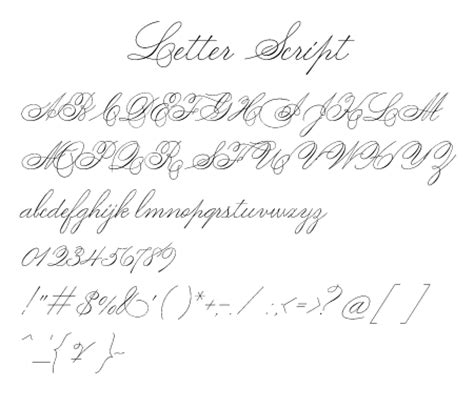 Letter Script
ABCDEFGHIJKLM
NOPQRSTUVWXYZ
abcdefghijk lmnopqrstuvwxyz
0123456789
!"#$%&'()*+,-./:;<=>?@[ ]
^_`{¥}~